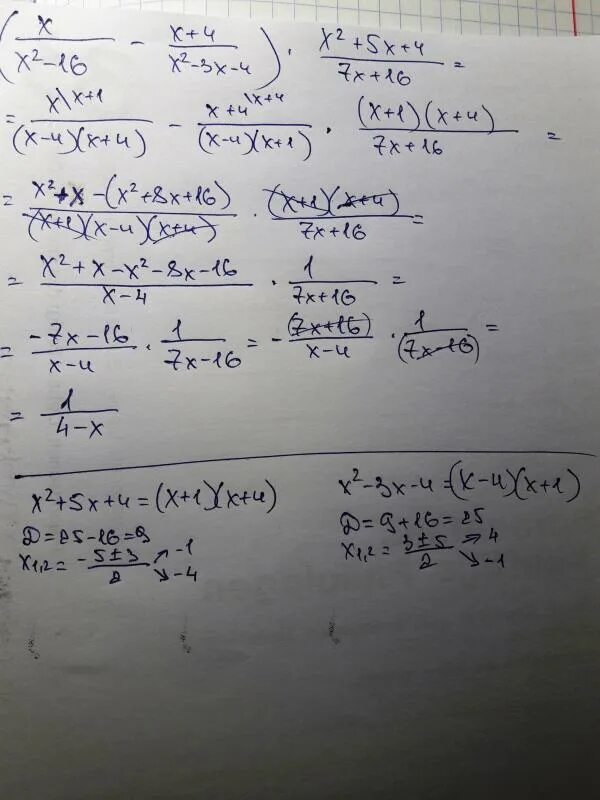 (x/(x²-16) - (x+4)/(x²-3x-4)) · (x²+5x+4)/(7x+16) =
= x\x+1/((x-4)(x+4)) - x+4\x+4/((x-4)(x+1)) · (x+1)(x+4)/(7x+16) =
= (x²+x-(x²+8x+16))/((x+1)(x-4)(x+4)) · (x+1)(x+4)/(7x+16) =
= (x²+x-x²-8x-16)/(x-4) · 1/(7x+16) =
= (-7x-16)/(x-4) · 1/(7x-16) = -(7x+16)/(x-4) · 1/(7x-16) =
= 1/(4-x)
x²+5x+4=(x+1)(x+4)
D=25-16=9
x1,2 = (-5±3)/2 ↗ -1 ↘ -4
x²-3x-4=(x-4)(x+1)
D=9+16=25
x1,2 = (3±5)/2 ↗ 4 ↘ -1